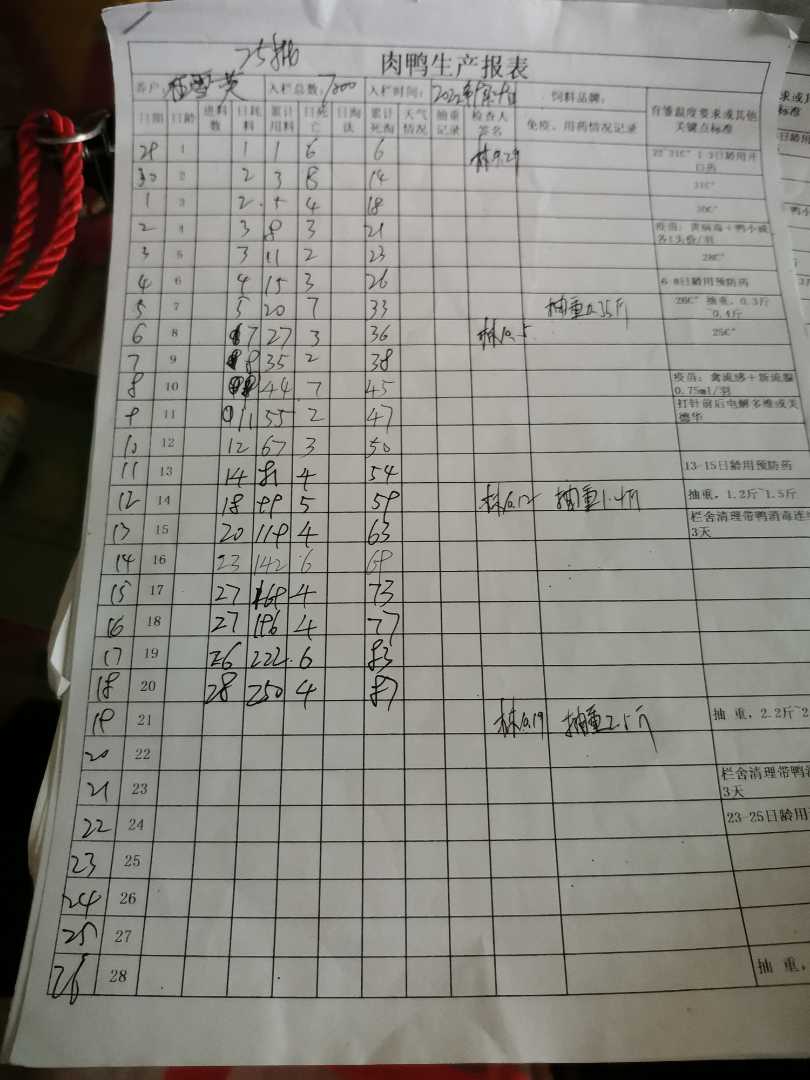 25批
肉鸭生产报表
养户: 英 入栏总数: 7200 入栏时间: 2022年 饲料品牌:
日期 日龄 进料数 日耗料 累计用料 日死亡 日淘汰 累计死淘 天气情况 抽重记录 检查人签名 免疫、用药情况记录 育雏温度要求或其他关键点标准
29 1 1 1 6 6 林9.29 1-3日龄用开口药
30 2 2 3 8 14 31C°
1 3 2 5 4 18 30C°
2 4 3 8 3 21 疫苗:
3 5 3 11 2 23 28C°
4 6 4 15 3 26 6-8日龄用预防药
5 7 5 20 7 33 抽重0.35斤 26C° 抽重，0.3斤~0.4斤
6 8 7 27 3 36 林10.5 25C°
7 9 8 35 2 38
8 10 9 44 7 45 疫苗: 禽流感+新流腺0.75ml/羽
9 11 11 55 2 47 打针前后电解多维或美德华
10 12 12 67 3 50
11 13 14 81 4 54 13-15日龄用预防药
12 14 18 99 5 59 林10.12 抽重1.4斤 抽重，1.2斤~1.5斤
13 15 20 119 4 63 栏舍清理带鸭消毒连续3天
14 16 23 142 6 69
15 17 27 169 4 73
16 18 27 196 4 77
17 19 26 222 6 83
18 20 28 250 4 87
19 21 林10.19 抽重2.5斤 抽 重，2.2斤~2.
20 22
21 23 栏舍清理带鸭消3天
22 24 23-25日龄用
23 25
24 26
25 27
26 28 抽 重，